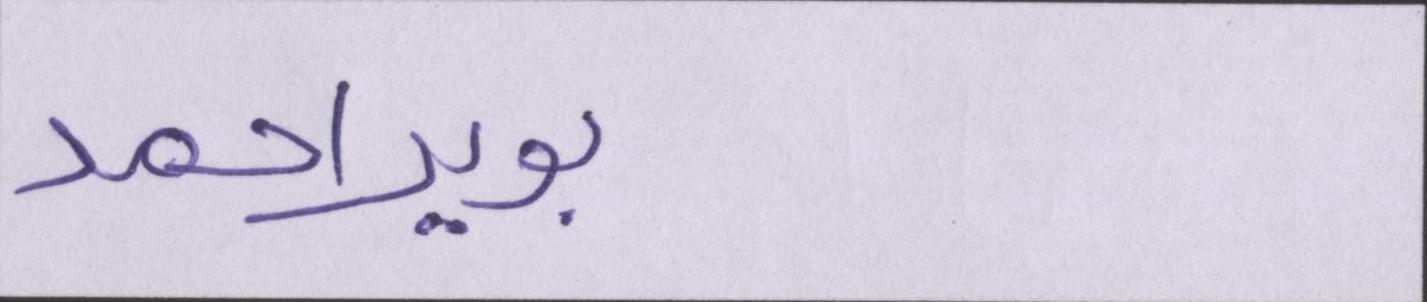 بويراحمد